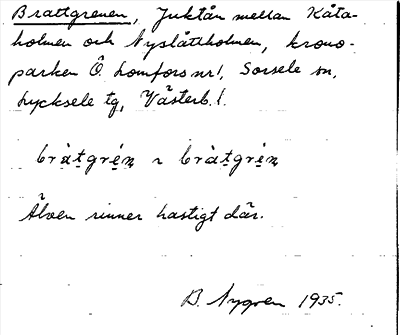 Brattgrenen, Juktån mellan Kåta-
holmen och Nyslåttholmen, krono-
parken Ö. Lomfors nr 1, Sorsele sn,
Lycksele tg, Västerb. l.
bràt̠grén ~ bràt̠grén
Älven rinner hastigt där.
B. Nygren 1935.